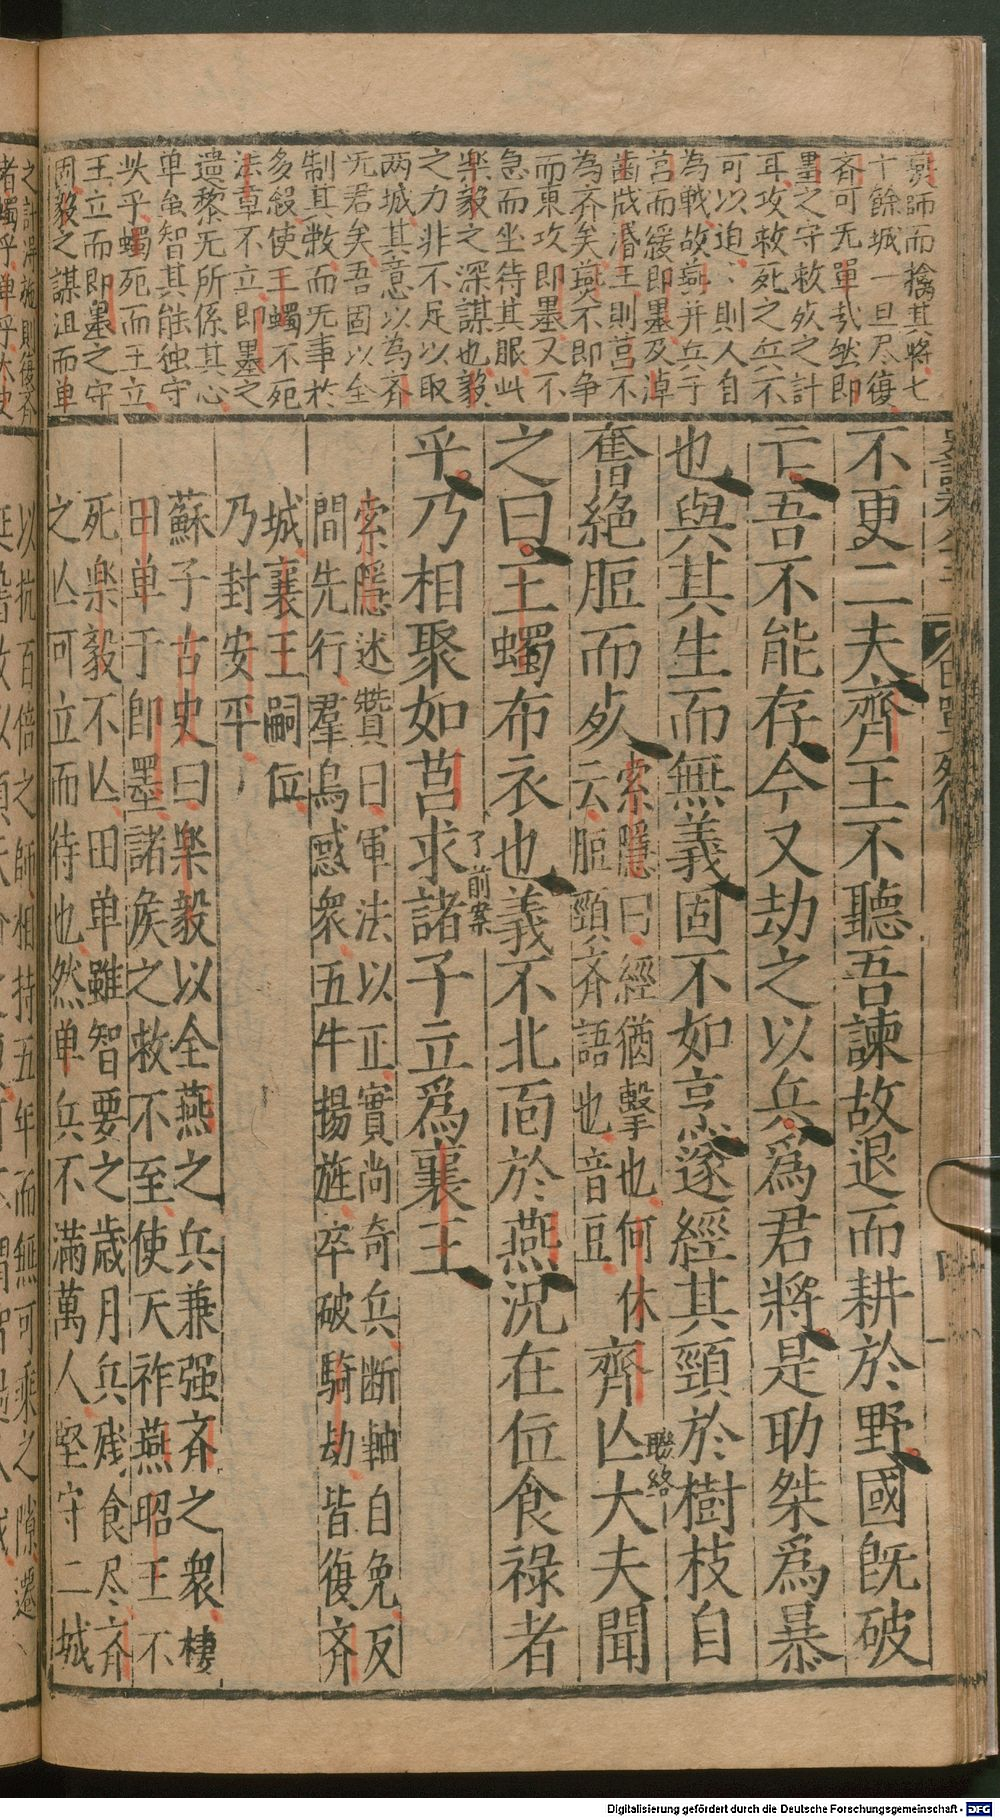 燕師而擒其將七
十餘城一旦尽復
斉可无單㢤然即
墨之守救歺之計
耳攻救死之兵不
可以迫、則人自
為戰故燕并兵于
莒而緩即墨及淖
齒戕湣王則莒不
為斉矣燕不即争
而東攻即墨又不
急而坐待其服此
楽毅之深謀也毅
之力非不足以取
两城其意以為斉
无君矣吾固以全
制其敝而无事於
多殺使王蠋不死
法章不立即墨之
遺黎无所係其心
单虽智其能独守
㕦乎蠋死而王立
王立而即墨之守
固毅之謀沮而单
不更二夫齊王不聽吾諫故退而耕於野國既破
亡吾不能存今又劫之以兵爲君將是助桀爲暴
也與其生而無義固不如烹遂經其頸於樹枝自
奮絕脰而歺
索隱曰經猶擊也何休
云脰頸斉語也音豆
齊亾大夫聞
聯絡
之曰王蠋布衣也義不北面於燕況在位食祿者
了前案
乎乃相聚如莒求諸子立爲襄王
索隱述贊曰軍法以正實尚奇兵断軸自免反
間先行羣鳥惑衆五牛揚旌卒破騎劫皆復斉
城襄王嗣位
乃封安平
蘇子古史曰楽毅以全燕之兵兼强斉之衆棲
田单于即墨諸矦之救不至使天祚燕昭王不
死楽毅不亾田单雖智要之歳月兵残食尽斉
之亾可立而待也然单兵不滿萬人堅守二城
之計得施則復斉
者蠋乎单乎太史
以抗百倍之師相持五年而無可乘之隙還
田單列傳
Digitalisierung gefördert durch die Deutsche Forschungsgemeinschaft - DFG